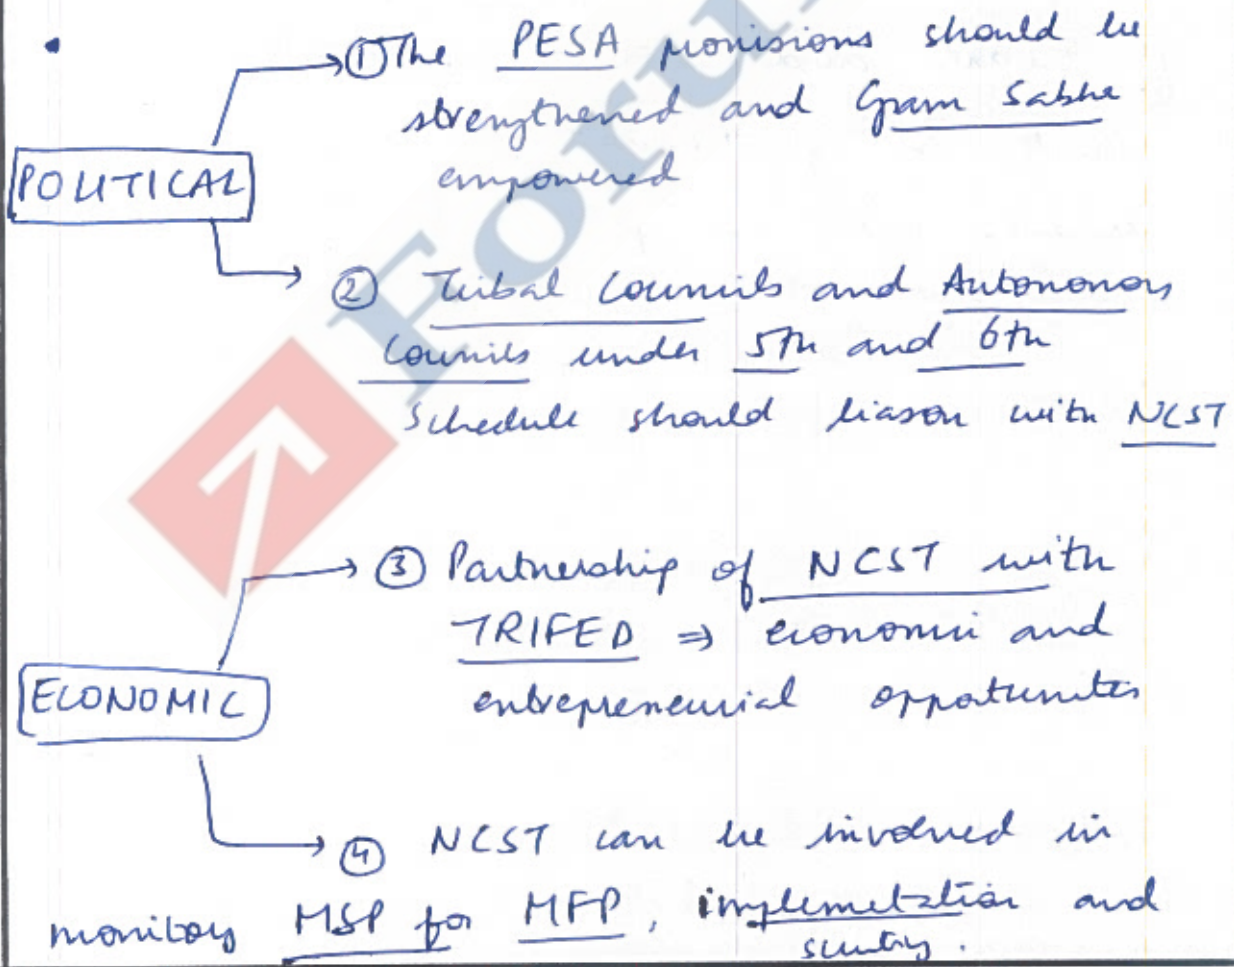 ① The PESA provisions should be
strengthened and Gram Sabha
empowered
POLITICAL
② Tribal Councils and Autonomous
Councils under 5th and 6th
Schedule should liason with NCST
③ Partnership of NCST with
TRIFED ⇒ economic and
entrepreneurial opportunites
ECONOMIC
④ NCST can be involved in
MSP for MFP, implemetation and
Foru